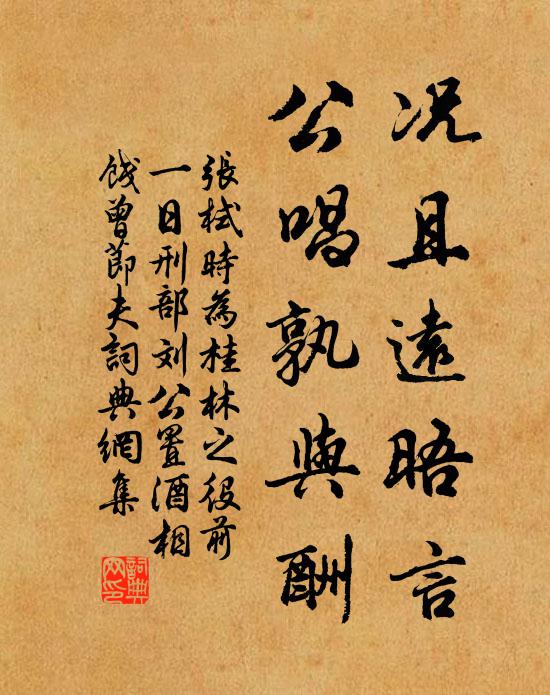 况且遠晤言
公唱孰與酬
張栻時為桂林之役前
一日刑部刘公置酒相
餞曾節夫詞典網集
詞典
网印